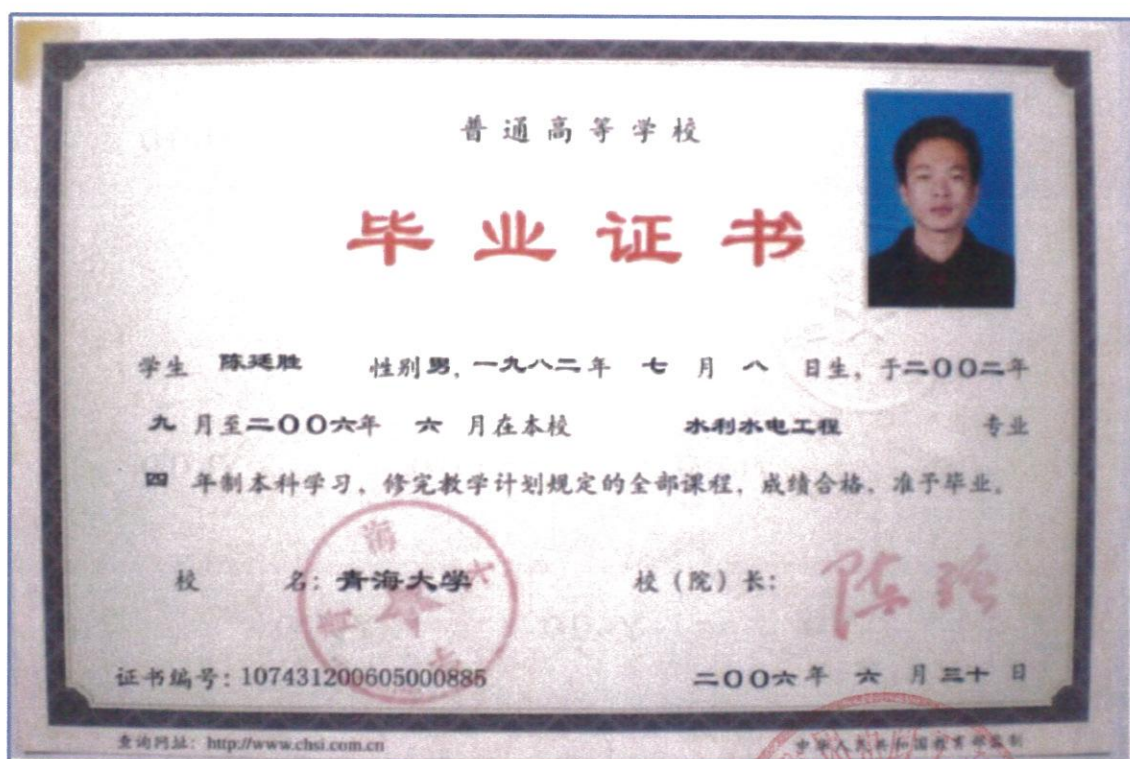 普通高等学校
毕业证书
学生 陈廷胜 性别 男, 一九八二年 七 月 八 日生, 于二〇〇二年
九 月至二〇〇六年 六 月在本校 水利水电工程 专业
四 年制本科学习, 修完教学计划规定的全部课程, 成绩合格, 准予毕业。
校 名: 青海大学 校（院）长: 陈强
证书编号: 107431200605000885 二〇〇六年 六 月 三十 日
查询网址: http://www.chsi.com.cn 中华人民共和国教育部监制